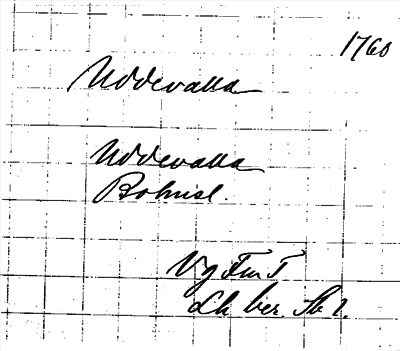 1760
Uddevalla
Uddevalla
Bohusl.
Vg Fm T
Lh ber.